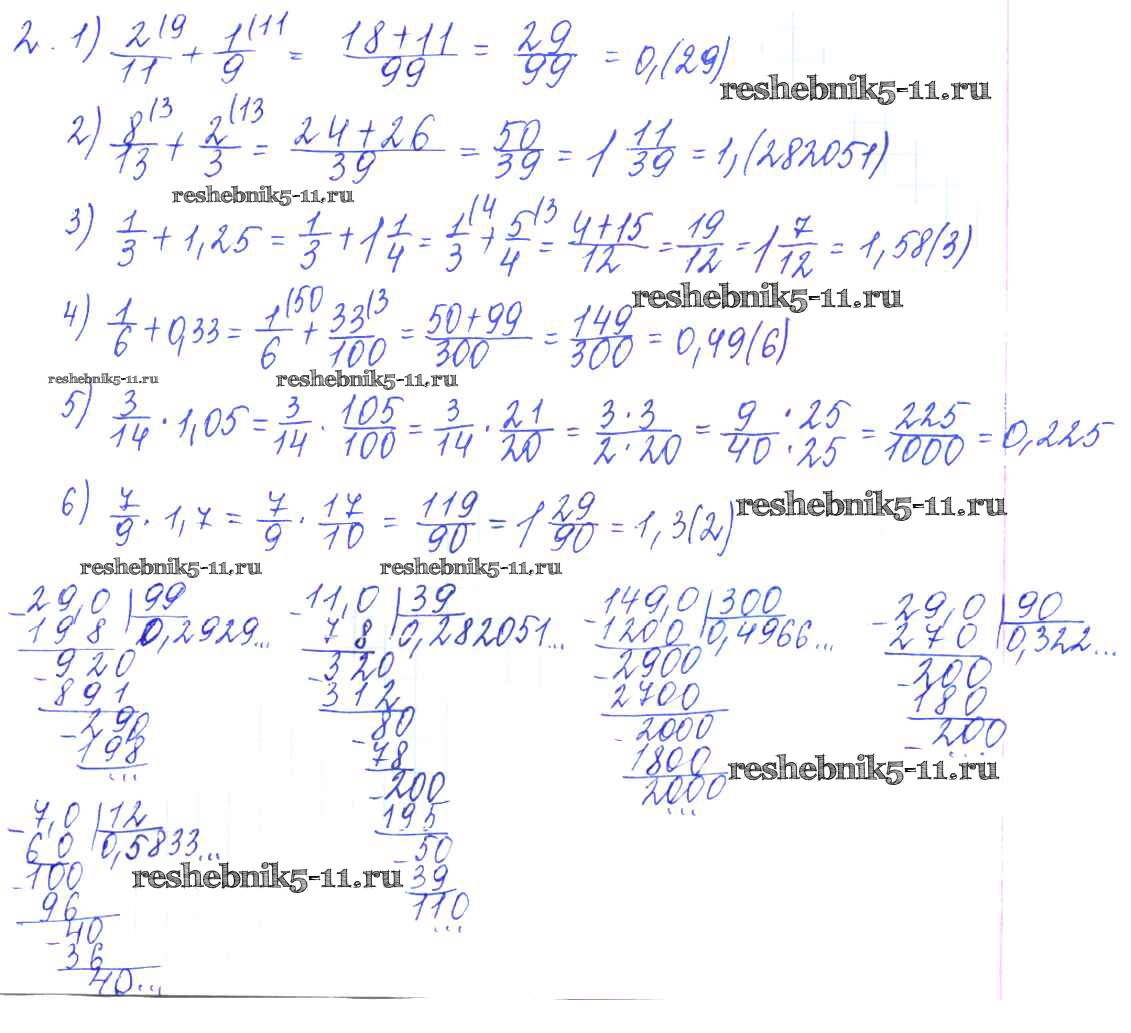 2. 1) 2(9/11 + 1(11/9 = 18+11/99 = 29/99 = 0,(29)
reshebnik5-11.ru
2) 8(3/13 + 2(13/3 = 24+26/39 = 50/39 = 1 11/39 = 1,(282051)
reshebnik5-11.ru
3) 1/3 + 1,25 = 1/3 + 1 1/4 = 1(4/3 + 5(3/4 = 4+15/12 = 19/12 = 1 7/12 = 1,58(3)
reshebnik5-11.ru
4) 1/6 + 0,33 = 1(50/6 + 33(3/100 = 50+99/300 = 149/300 = 0,49(6)
reshebnik5-11.ru reshebnik5-11.ru
5) 3/14 · 1,05 = 3/14 · 105/100 = 3/14 · 21/20 = 3·3/2·20 = 9·25/40·25 = 225/1000 = 0,225
6) 7/9 · 1,7 = 7/9 · 17/10 = 119/90 = 1 29/90 = 1,3(2)
reshebnik5-11.ru
reshebnik5-11.ru reshebnik5-11.ru
-29,0 | 99
198 | 0,2929...
-920
891
-290
198
...
-11,0 | 39
78 | 0,282051...
-320
312
-80
78
-200
195
-50
39
110
...
-149,0 | 300
1200 | 0,4966...
-2900
2700
-2000
1800
2000
...
-29,0 | 90
270 | 0,322...
-200
180
-200
...
reshebnik5-11.ru
-7,0 | 12
60 | 0,5833...
-100
96
-40
36
40...
reshebnik5-11.ru